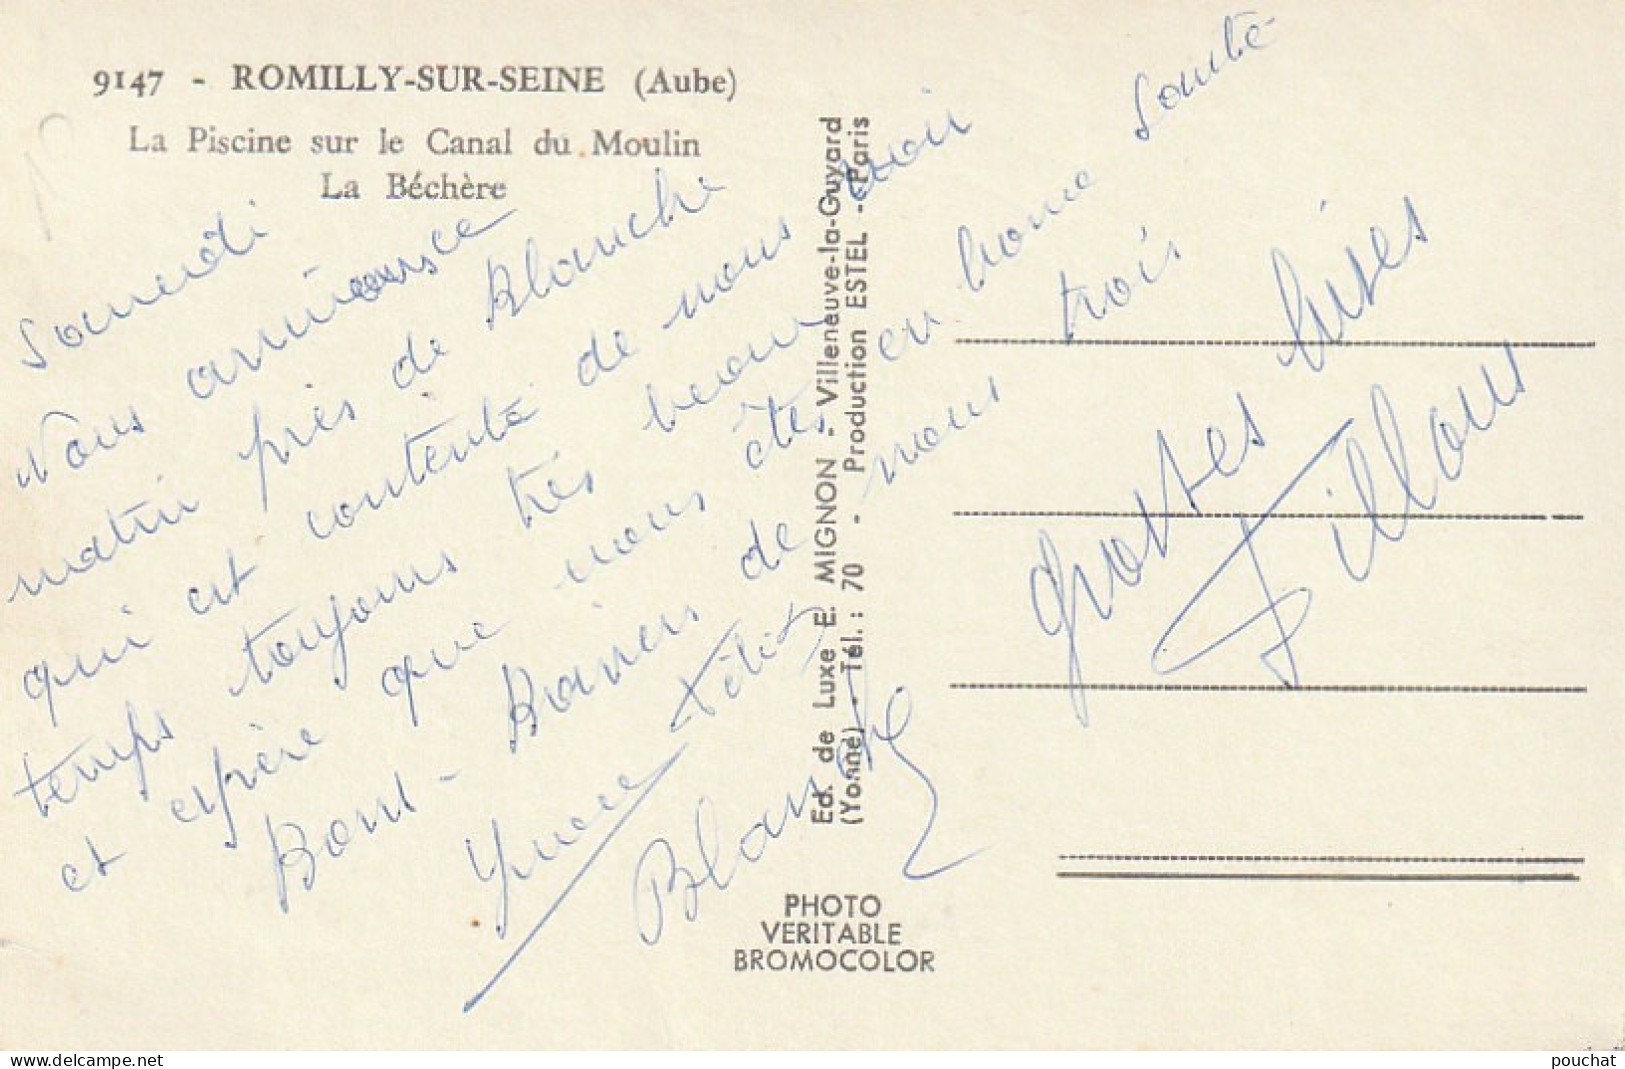 9147 - ROMILLY-SUR-SEINE (Aube)
La Piscine sur le Canal du Moulin
La Béchère
Samedi
Nous arrivons ce
matin près de Blanche
qui est contente de nous voir
temps toujours très beau
et espère que vous êtes en bonne santé
Bons Baisers de nous trois
Yvonne Félix
Blanche
Grosses bises
Fillous
Ed. de Luxe E. MIGNON - Villeneuve-la-Guyard
(Yonne) - Tél. : 70 - Production ESTEL - Paris
PHOTO
VERITABLE
BROMOCOLOR
delcampe.net
pouchat